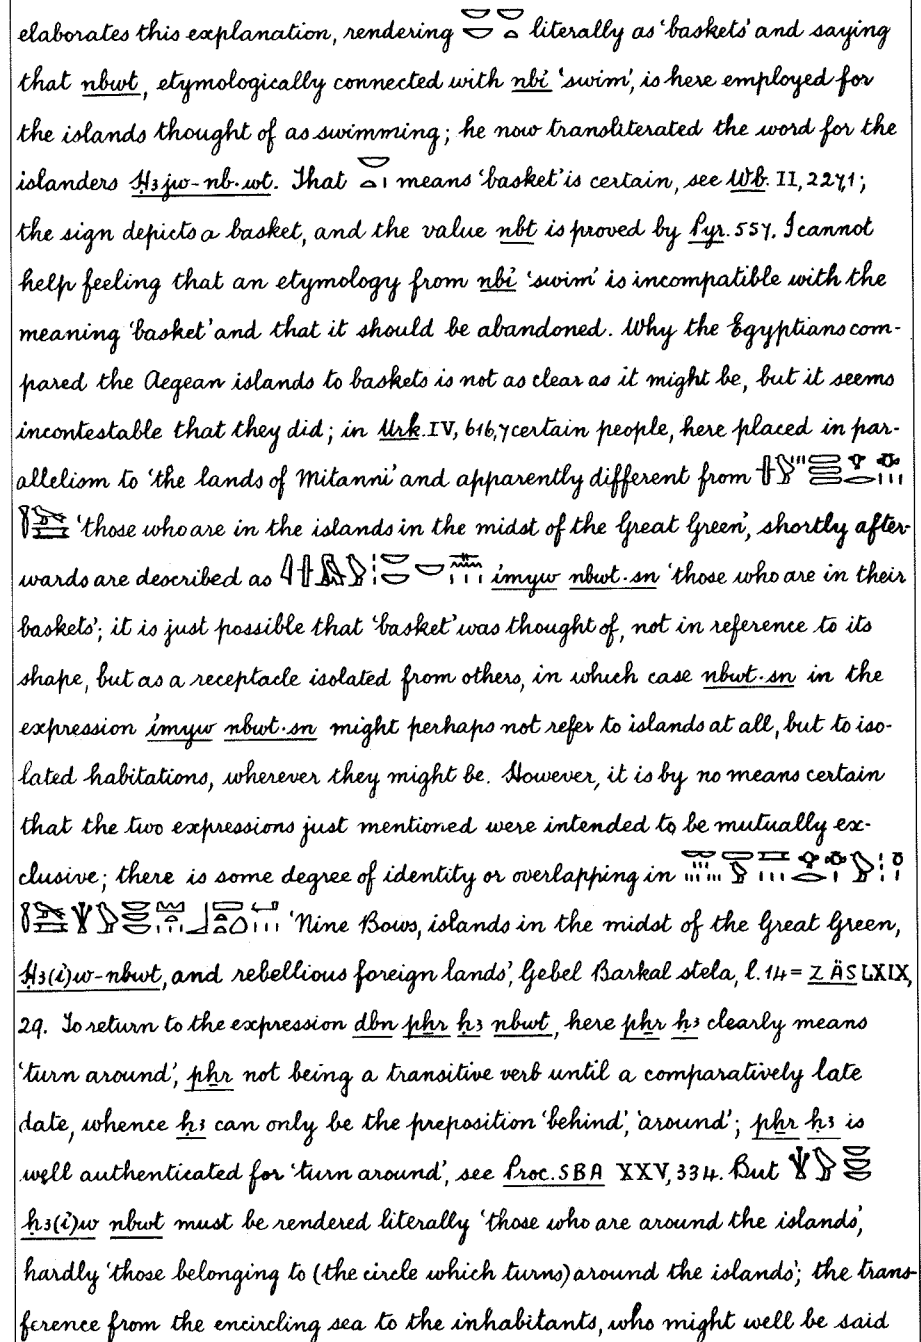 elaborates this explanation, rendering literally as ‘baskets’ and saying
that nbwt, etymologically connected with nbi ‘swim’, is here employed for
the islands thought of as swimming; he now transliterated the word for the
islanders Ḥꜣjw-nb.wt. That means ‘basket’ is certain, see Wb. II, 227,1;
the sign depicts a basket, and the value nbt is proved by Pyr. 557. I cannot
help feeling that an etymology from nbi ‘swim’ is incompatible with the
meaning ‘basket’ and that it should be abandoned. Why the Egyptians com-
pared the Aegean islands to baskets is not as clear as it might be, but it seems
incontestable that they did; in Urk. IV, 616,7 certain people, here placed in par-
allelism to ‘the lands of Mitanni’ and apparently different from
‘those who are in the islands in the midst of the Great Green’, shortly after-
wards are described as imyw nbwt·sn ‘those who are in their
baskets’; it is just possible that ‘basket’ was thought of, not in reference to its
shape, but as a receptacle isolated from others, in which case nbwt·sn in the
expression imyw nbwt·sn might perhaps not refer to islands at all, but to iso-
lated habitations, wherever they might be. However, it is by no means certain
that the two expressions just mentioned were intended to be mutually ex-
clusive; there is some degree of identity or overlapping in
‘Nine Bows, islands in the midst of the Great Green,
Ḥꜣ(i)w-nbwt, and rebellious foreign lands’, Gebel Barkal stela, l. 14 = ZÄS LXIX,
29. To return to the expression dbn pẖr ḥꜣ nbwt, here pẖr ḥꜣ clearly means
‘turn around’, pẖr not being a transitive verb until a comparatively late
date, whence ḥꜣ can only be the preposition ‘behind’, ‘around’; pẖr ḥꜣ is
well authenticated for ‘turn around’, see Proc. SBA XXV, 334. But
ḥꜣ(i)w nbwt must be rendered literally ‘those who are around the islands’,
hardly ‘those belonging to (the circle which turns) around the islands’; the trans-
ference from the encircling sea to the inhabitants, who might well be said